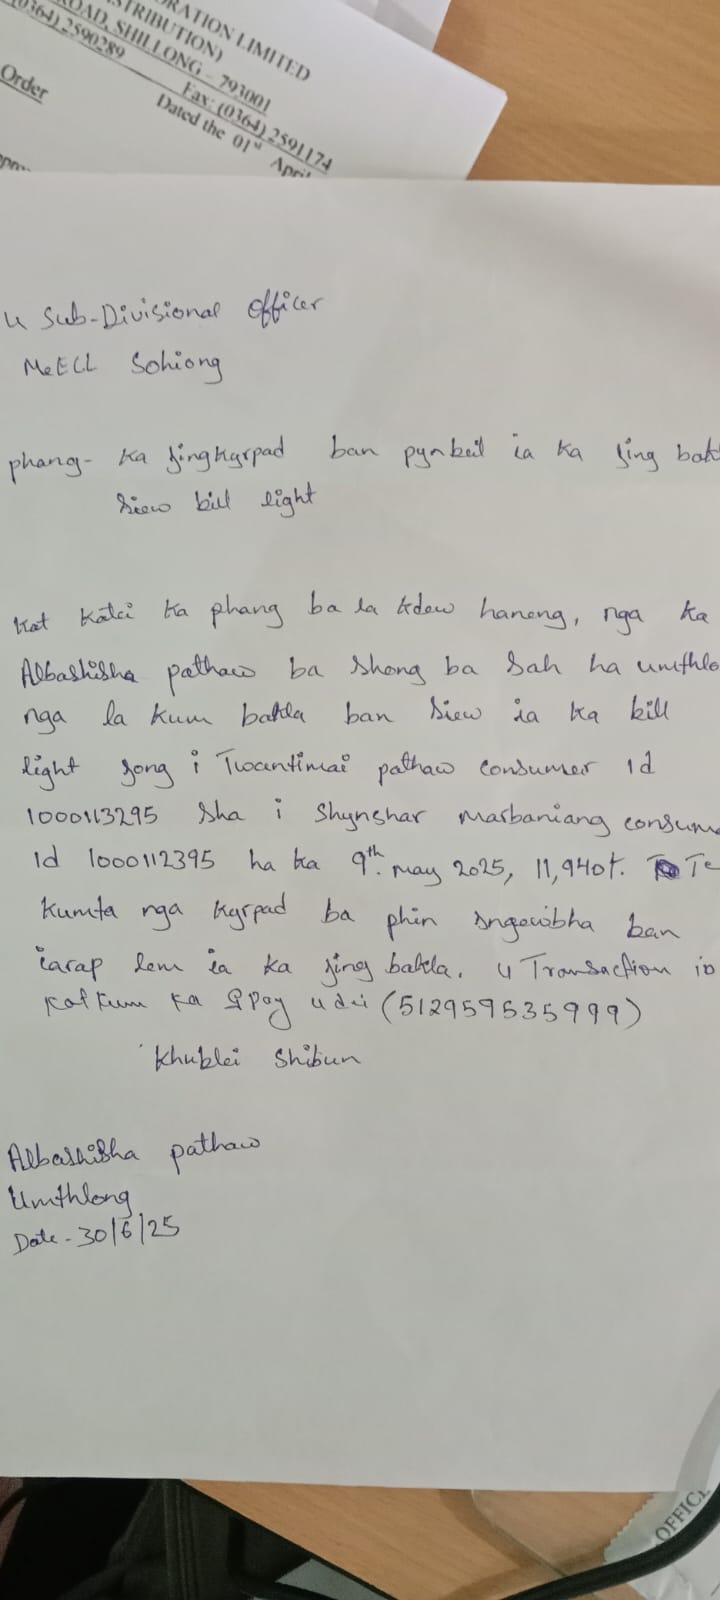 ORATION LIMITED
TRIBUTION)
OAD, SHILLONG – 793001
(0364) 2590289 Fax: (0364) 2591174
Order
Dated the 01st April
u Sub-Divisional Officer
MeECL Sohiong
phang- Ka jingkyrpad ban pynbeit ia ka jing bak
siew bill light
Kat katei ka phang ba la kdew haneng, nga ka
Albashisha pathaw ba shong ba sah ha umthlo
nga la kum bakla ban siew ia ka bill
light jong i Twantimai pathaw consumer id
1000113295 sha i Shynshar marbaniang consum
id 1000112395 ha ka 9th. may 2025, 11,940t. Te
kumta nga kyrpad ba phin sngewbha ban
iarap lem ia ka jing bakla. u Transaction id
katkum ka GPay u dei (512959535999)
Khublei Shibun
Albashisha pathaw
Umthlong
Date - 30/6/25
OFFICE